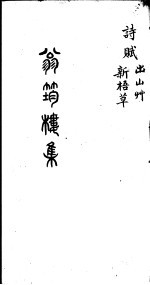 詩賦
出山艸
新梧草
翁筠樓集